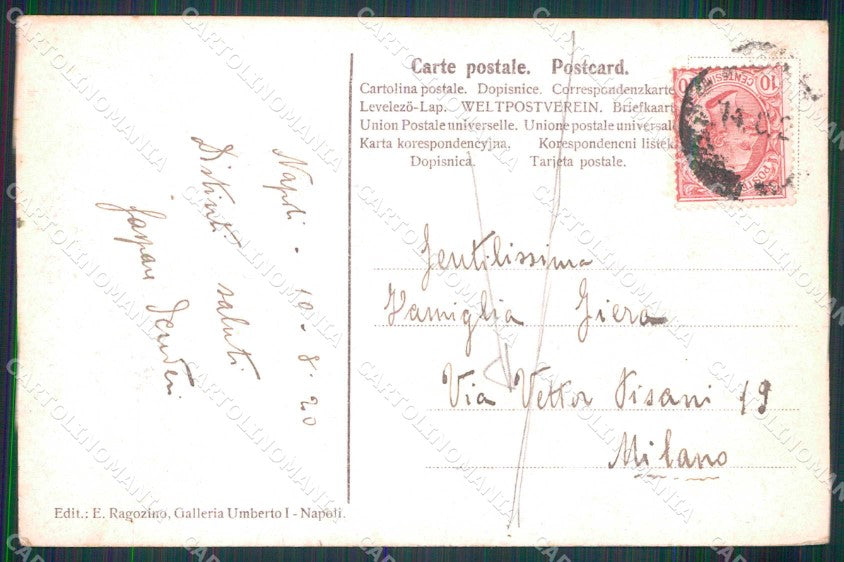 Carte postale. Postcard.
Cartolina postale. Dopisnice. Correspondenzkarte
Levelező-Lap. WELTPOSTVEREIN. Briefkaart
Union Postale universelle. Unione postale universal
Karta korespondencyjna. Korespondencni listek
Dopisnica. Tarjeta postale.
10 CENTESIMI 10
POSTE
Napoli - 10 - 8 - 20
Distinti saluti
Gaspare
Gentilissima
Famiglia Giera
Via Vettor Pisani 19
Milano
Edit.: E. Ragozino, Galleria Umberto I - Napoli.
CARTOLINOMANIA